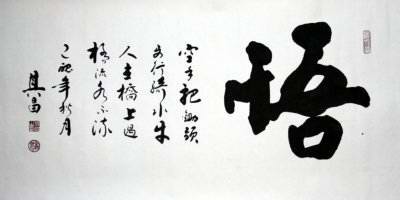 悟
空手把鋤頭
步行騎水牛
人在橋上過
橋流水不流
年秋月
昌